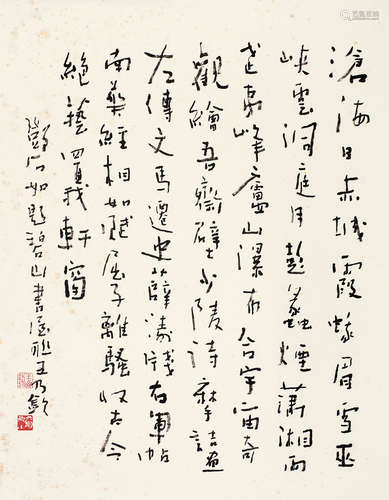 滄海日赤城霞蛾眉雪巫
峽雲洞庭月彭蠡煙瀟湘雨
武夷峰廬山瀑布合宇宙奇
觀繪吾齋壁少陵詩摩詰畫
左傳文馬遷史薛濤牋右軍帖
南華經相如賦屈子離騷收古今
絕藝置我軒窗
鄧石如題碧山書屋聯王乃欽